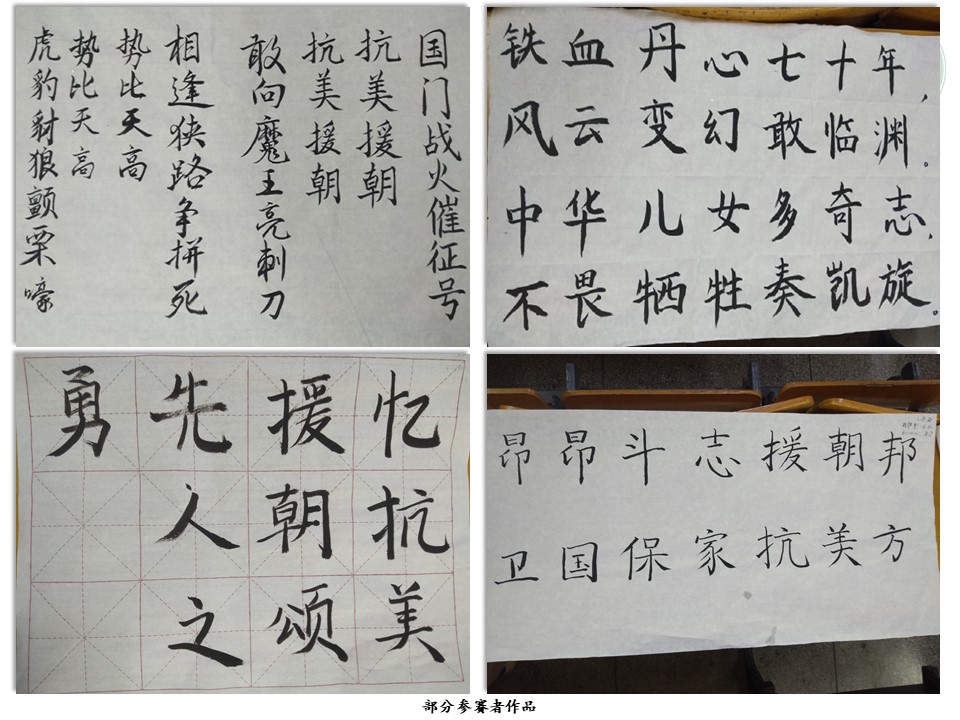 国门战火催征号
抗美援朝
抗美援朝
敢向魔王亮刺刀
相逢狭路争拼死
势比天高
势比天高
虎豹豺狼颤栗嚎
铁血丹心七十年,
风云变幻敢临渊。
中华儿女多奇志,
不畏牺牲奏凯旋。
忆抗美
援朝颂
先人之
勇
昂昂斗志援朝邦
卫国保家抗美方
部分参赛者作品